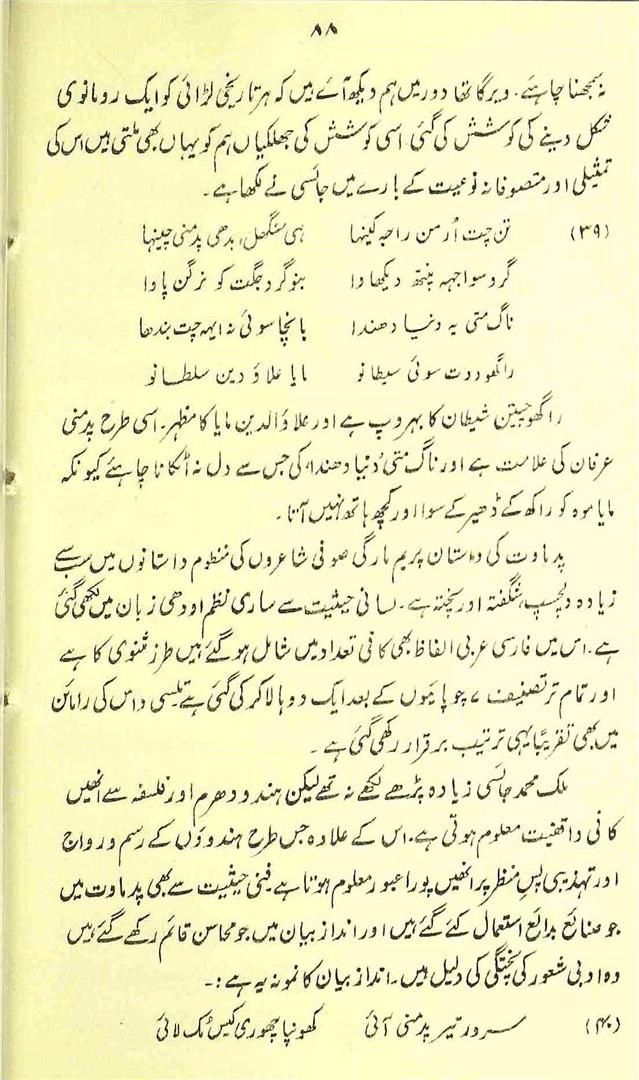 ۸۸
یہ سمجھنا چاہئے۔ ویرگاتھا دور میں ہم دیکھ آئے ہیں کہ ہر تاریخی لڑائی کو ایک رومانوی
شکل دینے کی کوشش کی گئی اسی کوشش کی جھلکیاں ہم کو یہاں بھی ملتی ہیں اس کی
تمثیلی اور متصوفانہ نوعیت کے بارے میں جائسی نے لکھا ہے۔
(۳۹) تن چت اُرمن راجہ کینہا ہی سنگھل، بدھی پدمنی چینہا
گرو سوا جہہ پنتھ دیکھاوا بنو گرو جگت کو نرگن پاوا
ناگ متی یہ دنیا دھندا بانچا سوئی نہ ایہہ چت بندھا
راگھو دوت سوئی سیطانو مایا علاؤ دین سلطانو
راگھو چیتن شیطان کا بہروپ ہے اور علاؤالدین مایا کا مظہر۔ اسی طرح پدمنی
عرفان کی علامت ہے اور ناگ متی 'دُنیا دھندا' کی جس سے دل نہ اٹکانا چاہئے کیونکہ
مایا موہ کو راکھ کے ڈھیر کے سوا اور کچھ ہاتھ نہیں آتا۔
پدماوت کی داستان پریم مارگی صوفی شاعروں کی منظوم داستانوں میں سب سے
زیادہ دلچسپ، شگفتہ اور پختہ ہے۔ لسانی حیثیت سے ساری نظم اودھی زبان میں لکھی گئی
ہے۔ اس میں فارسی عربی الفاظ بھی کافی تعداد میں شامل ہو گئے ہیں طرز مثنوی کا ہے
اور تمام تر تصنیف ۷ چوپائیوں کے بعد ایک دوہا لا کر کی گئی ہے تلسی داس کی رامائن
میں بھی تقریباً یہی ترتیب برقرار رکھی گئی ہے۔
ملک محمد جائسی زیادہ پڑھے لکھے نہ تھے لیکن ہندو دھرم اور فلسفہ سے انھیں
کافی واقفیت معلوم ہوتی ہے۔ اس کے علاوہ جس طرح ہندوؤں کے رسم و رواج
اور تہذیبی پس منظر پر انھیں پورا عبور معلوم ہوتا ہے فنی حیثیت سے بھی پدماوت میں
جو صنائع بدائع استعمال کئے گئے ہیں اور انداز بیان میں جو محاسن قائم رکھے گئے ہیں
وہ ادبی شعور کی پختگی کی دلیل ہیں۔ انداز بیان کا نمونہ یہ ہے :۔
(۴۰) سرور تیر پدمنی آئی کھونپا چھوری کیس مُک لائی